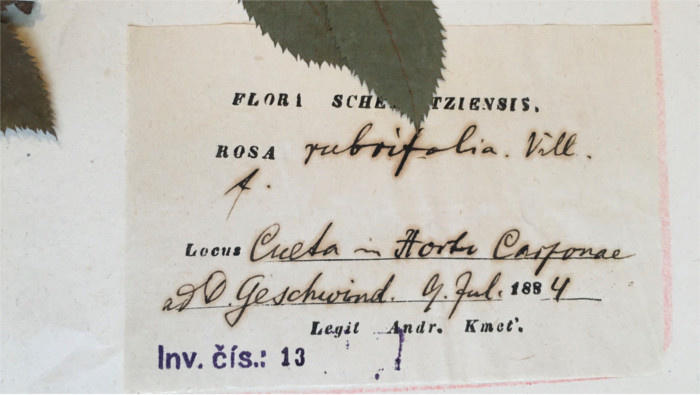 FLORA SCHE TZIENSIS.
ROSA rubrifolia. Vill.
f.
Locus Culta in Horto Carponae
ad D. Geschwind. 9. Jul. 1884
Legit Andr. Kmeť.
Inv. čís.: 13